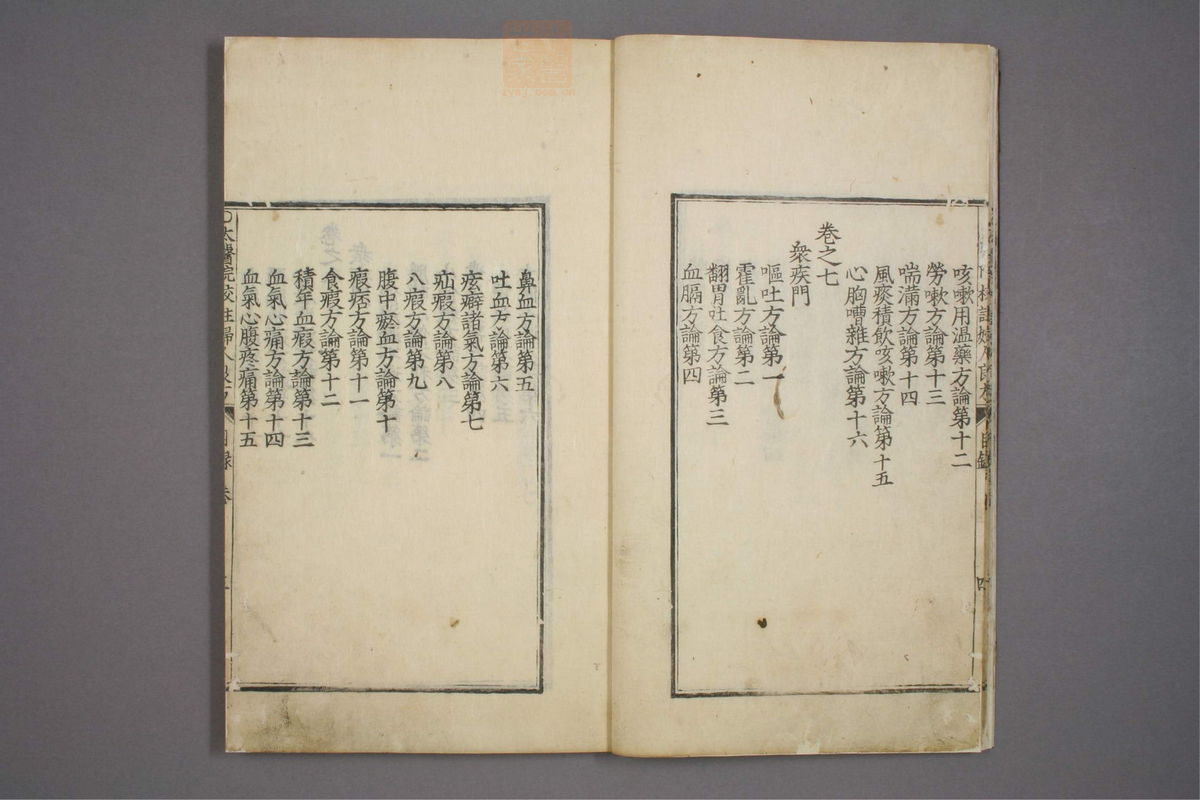 咳嗽用溫藥方論第十二
勞嗽方論第十三
喘滿方論第十四
風痰積飲咳嗽方論第十五
心胸嘈雜方論第十六
卷之七
衆疾門
嘔吐方論第一
霍亂方論第二
翻胃吐食方論第三
血膈方論第四
鼻血方論第五
吐血方論第六
痃癖諸氣方論第七
疝瘕方論第八
八瘕方論第九
腹中瘀血方論第十
瘕痞方論第十一
食瘕方論第十二
積年血瘕方論第十三
血氣心痛方論第十四
血氣心腹疼痛第十五
太醫院校註婦人良方
目錄